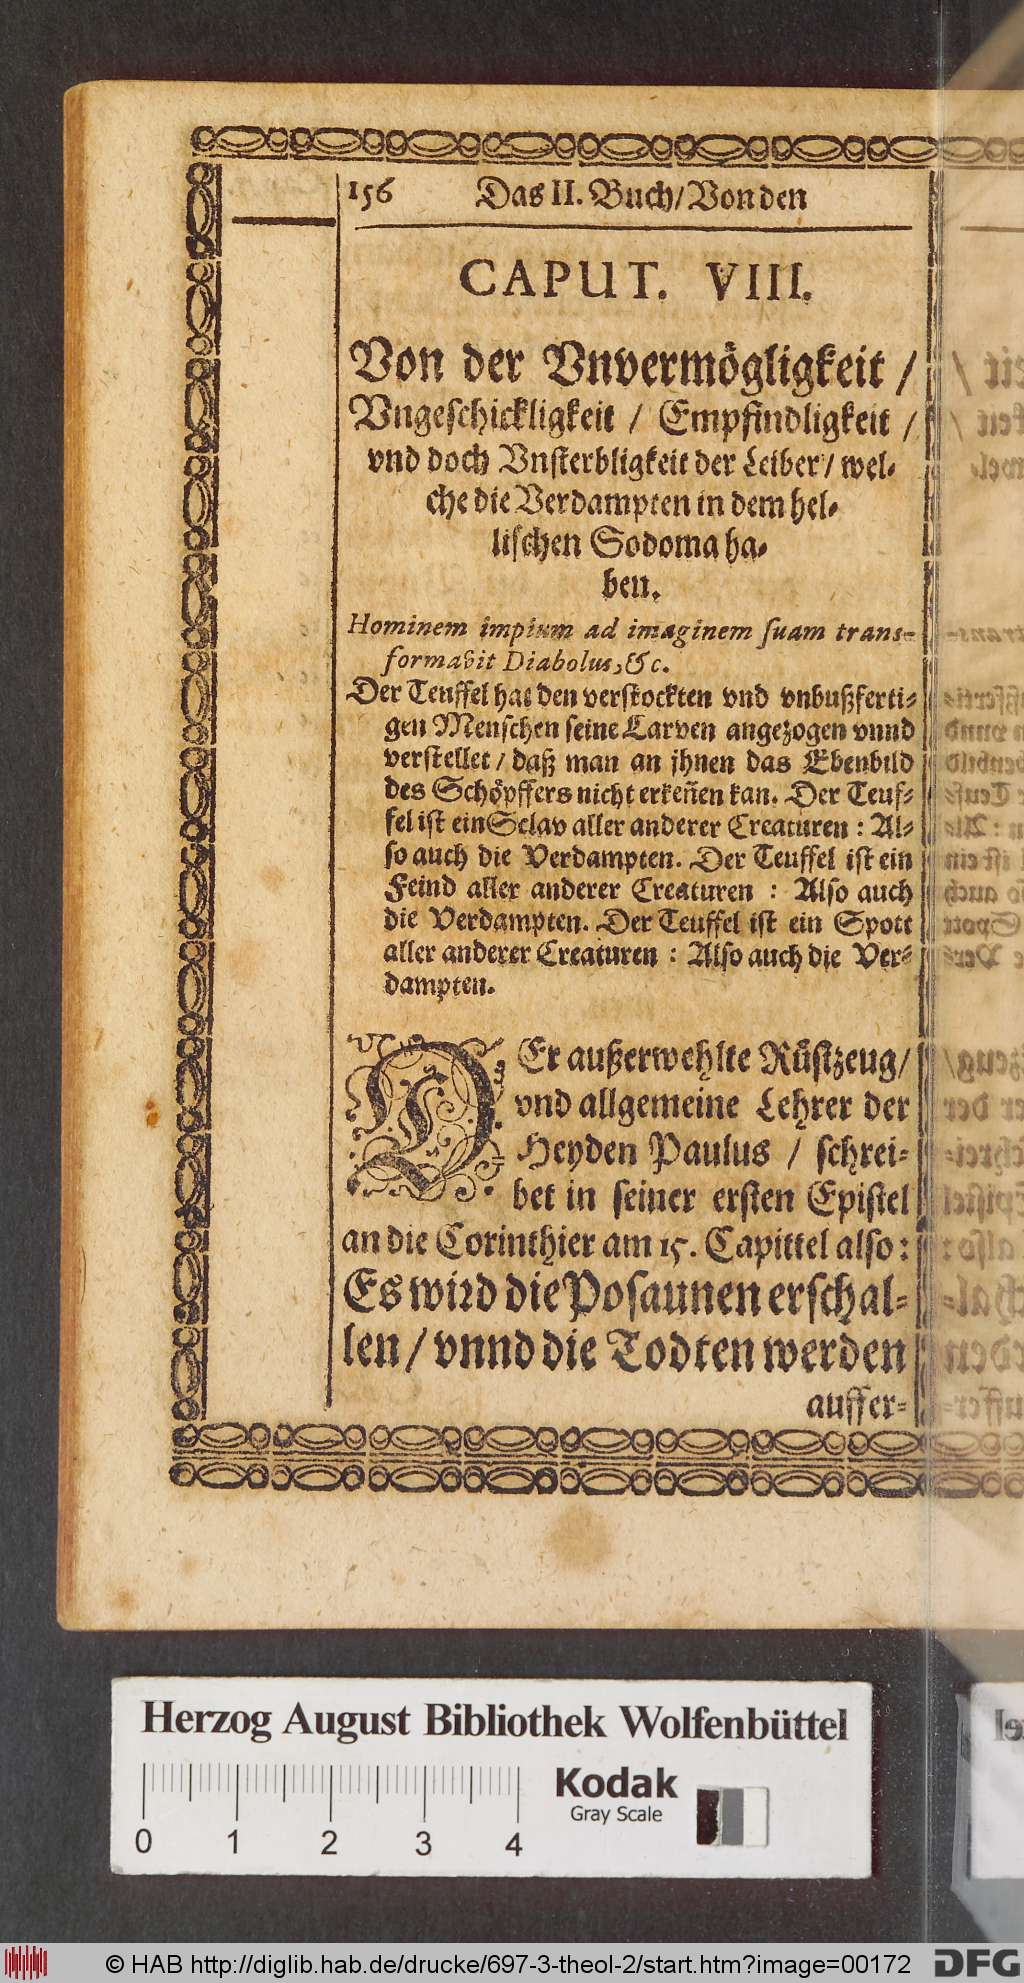 156 Das II. Buch/ Von den
CAPUT. VIII.
Von der Vnvermögligkeit /
Vngeschickligkeit / Empfindligkeit /
vnd doch Vnsterbligkeit der Leiber / wel-
che die Verdampten in dem hel-
lischen Sodoma ha-
ben.
Hominem impium ad imaginem suam trans-
formavit Diabolus, &c.
Der Teuffel hat den verstockten vnd vnbußferti-
gen Menschen seine Larven angezogen vnnd
verstellet / daß man an jhnen das Ebenbild
des Schöpffers nicht erkeñen kan. Der Teuf-
fel ist ein Sclav aller anderer Creaturen : Al-
so auch die Verdampten. Der Teuffel ist ein
Feind aller anderer Creaturen : Also auch
die Verdampten. Der Teuffel ist ein Spott
aller anderer Creaturen : Also auch die Ver-
dampten.
DEr außerwehlte Rüstzeug/
vnd allgemeine Lehrer der
Heyden Paulus / schrei-
bet in seiner ersten Epistel
an die Corinthier am 15. Capittel also :
Es wird die Posaunen erschal-
len / vnnd die Todten werden
auffer-
Herzog August Bibliothek Wolfenbüttel
Kodak
Gray Scale
0 1 2 3 4
© HAB http://diglib.hab.de/drucke/697-3-theol-2/start.htm?image=00172
DFG